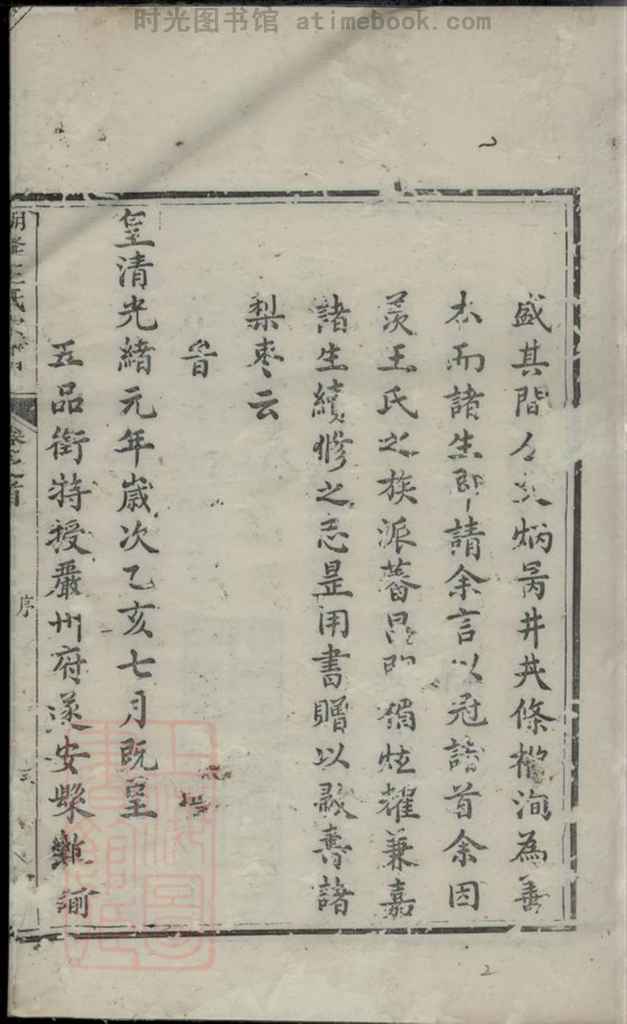 时光图书馆 atimebook.com
盛其間人文炳昺井井條櫂洵為善
本而諸生即請余言以冠諸首余因
羨王氏之族派蕃昌即獨炫耀兼嘉
諸生續修之志是用書贈以誌壽諸
梨棗云
旹
皇清光緒元年歲次乙亥七月既望
五品銜特授嚴州府遂安縣
王氏
卷之首
序
2